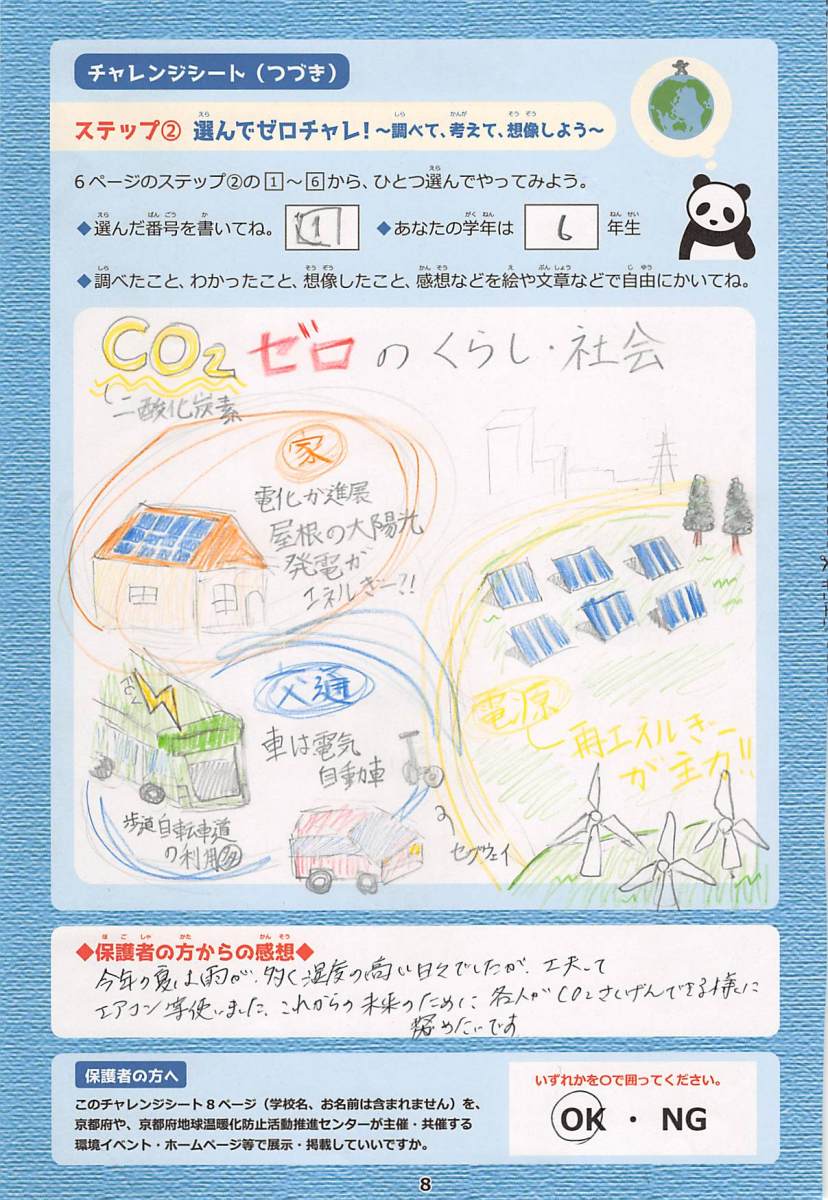 チャレンジシート(つづき)
ステップ② 選んでゼロチャレ! ~調べて、考えて、想像しよう~
6ページのステップ②の1~6から、ひとつ選んでやってみよう。
◆選んだ番号を書いてね。 1 ◆あなたの学年は 6 年生
◆調べたこと、わかったこと、想像したこと、感想などを絵や文章などで自由にかいてね。
CO2 ゼロのくらし・社会
二酸化炭素
家
電化が進展
屋根の太陽光
発電が
エネルぎー?!
交通
車は電気
自動車
歩道自転車道
の利用多
セグウェイ
電源
再エネルぎー
が主力!!
◆保護者の方からの感想◆
今年の夏は雨が多く湿度の高い日々でしたが、工夫して
エアコン等使いました。これからの未来のために、各人がCO2さくげんできる様に
努めたいです
保護者の方へ
このチャレンジシート8ページ(学校名、お名前は含まれません)を、
京都府や、京都府地球温暖化防止活動推進センターが主催・共催する
環境イベント・ホームページ等で展示・掲載していいですか。
いずれかを○で囲ってください。
OK ・ NG
8